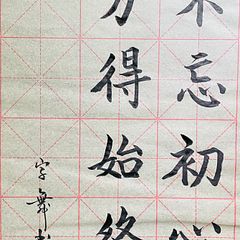 不忘初心
方得始终
字舞书